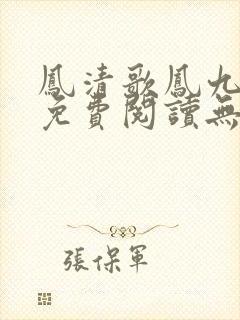 鳳清歌鳳九
免費閱讀無
張保軍